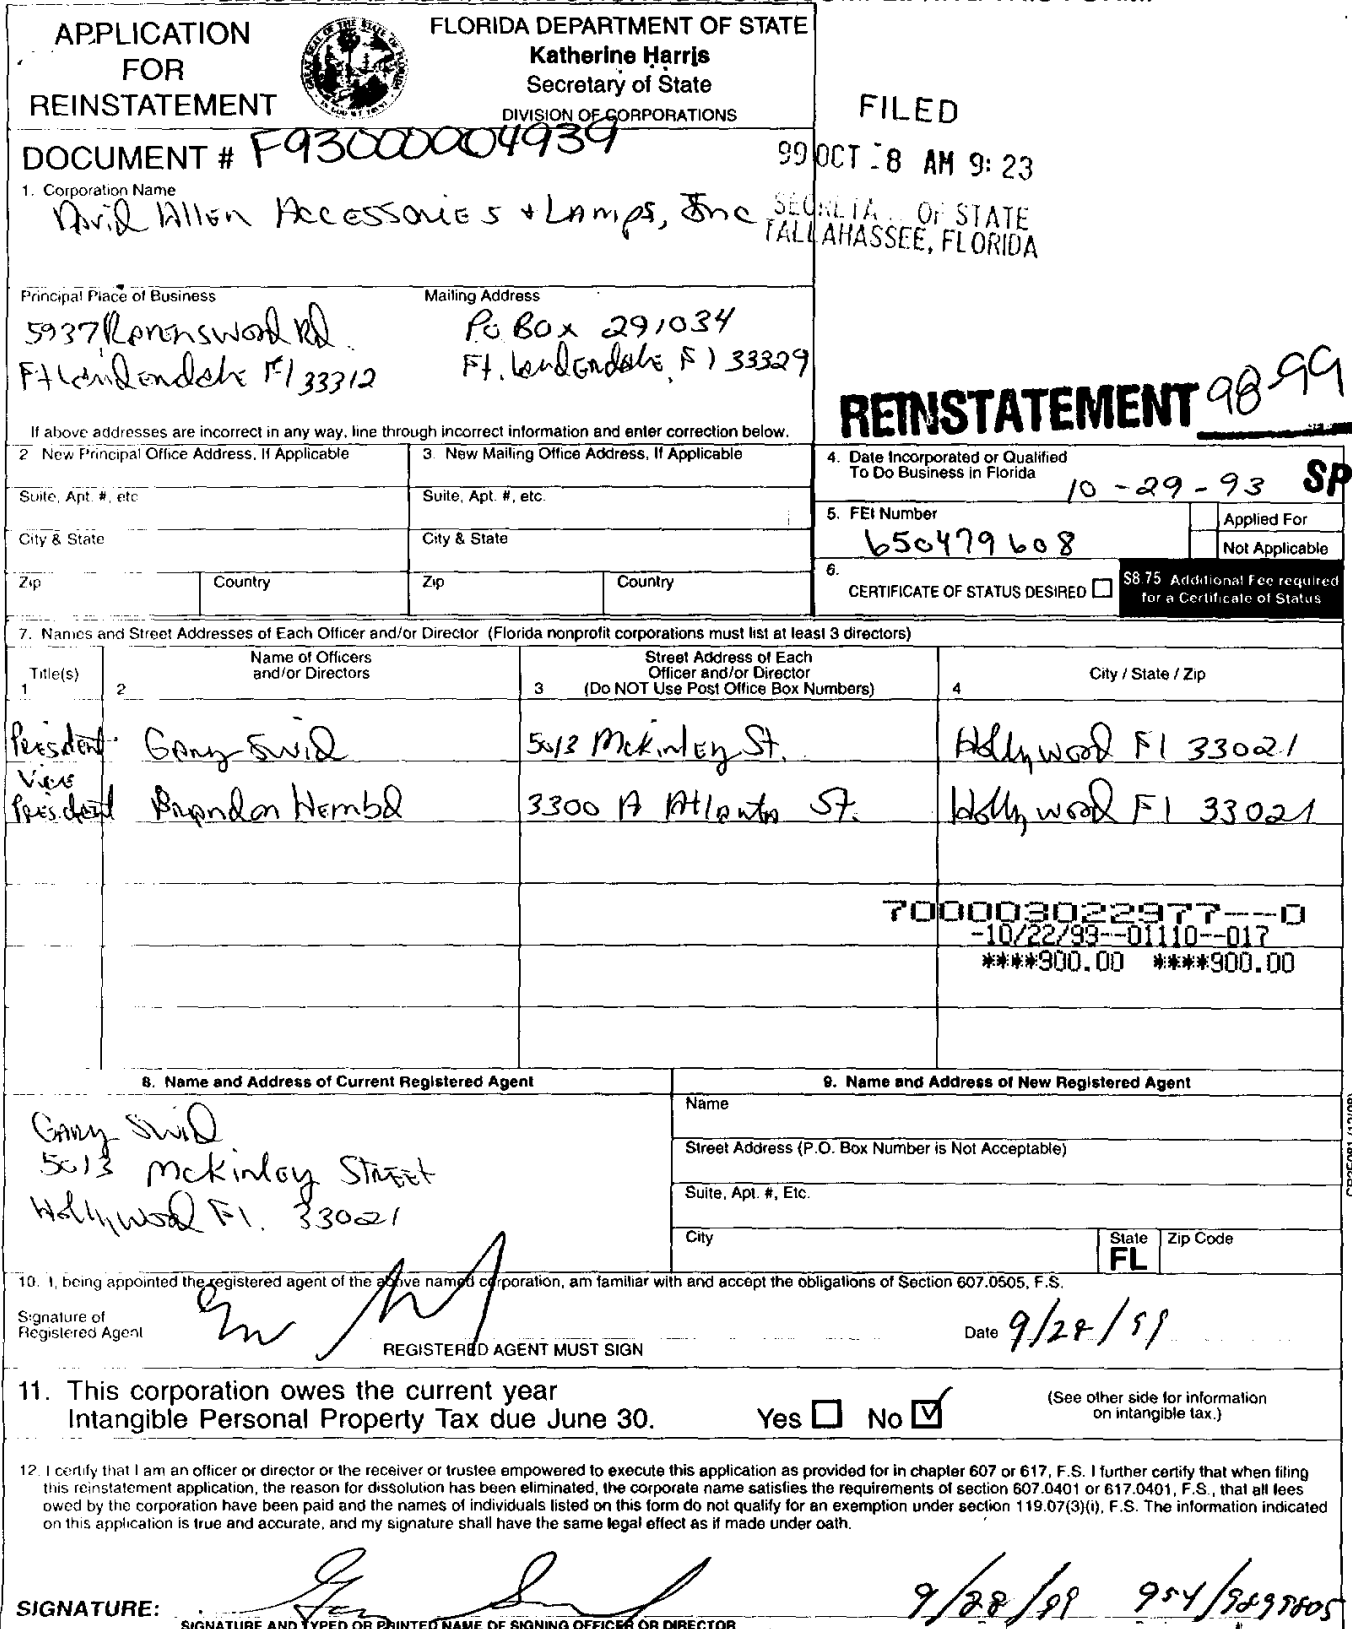 APPLICATION
FOR
REINSTATEMENT
FLORIDA DEPARTMENT OF STATE
Katherine Harris
Secretary of State
DIVISION OF CORPORATIONS
FILED
99 OCT -8 AM 9: 23
OF STATE
TALLAHASSEE, FLORIDA
DOCUMENT # F93000004939
1. Corporation Name
David Allen Accessories + Lamps, Inc
Principal Place of Business
Mailing Address
5937 Ravenswood Rd
Ft Lauderdale Fl 33312
Po Box 291034
Ft. Lauderdale, Fl 33329
REINSTATEMENT 98-99
If above addresses are incorrect in any way, line through incorrect information and enter correction below.
2 New Principal Office Address, If Applicable
3. New Mailing Office Address, If Applicable
4. Date Incorporated or Qualified
To Do Business in Florida
10-29-93
SP
Suite, Apt. #, etc
Suite, Apt. #, etc.
5. FEI Number
650479608
Applied For
Not Applicable
City & State
City & State
Zip
Country
Zip
Country
6.
CERTIFICATE OF STATUS DESIRED
$8.75 Additional Fee required
for a Certificate of Status
7. Names and Street Addresses of Each Officer and/or Director (Florida nonprofit corporations must list at least 3 directors)
Title(s)
1
Name of Officers
and/or Directors
2
Street Address of Each
Officer and/or Director
3 (Do NOT Use Post Office Box Numbers)
City / State / Zip
4
President Gary Swid 5013 McKinley St. Hollywood Fl 33021
Vice
President Brandon Hembd 3300 A Atlanta St. Hollywood Fl 33021
700003022977--0
-10/22/99--01110--017
****900.00 ****900.00
8. Name and Address of Current Registered Agent
9. Name and Address of New Registered Agent
Gary Swid
5013 McKinley Street
Hollywood Fl. 33021
Name
Street Address (P.O. Box Number is Not Acceptable)
Suite, Apt. #, Etc.
City
State
FL
Zip Code
10. I, being appointed the registered agent of the above named corporation, am familiar with and accept the obligations of Section 607.0505, F.S.
Signature of
Registered Agent
REGISTERED AGENT MUST SIGN
Date 9/28/99
11. This corporation owes the current year
Intangible Personal Property Tax due June 30.
Yes No
(See other side for information
on intangible tax.)
12. I certify that I am an officer or director or the receiver or trustee empowered to execute this application as provided for in chapter 607 or 617, F.S. I further certify that when filing
this reinstatement application, the reason for dissolution has been eliminated, the corporate name satisfies the requirements of section 607.0401 or 617.0401, F.S., that all fees
owed by the corporation have been paid and the names of individuals listed on this form do not qualify for an exemption under section 119.07(3)(i), F.S. The information indicated
on this application is true and accurate, and my signature shall have the same legal effect as if made under oath.
SIGNATURE:
9/28/99 954/9899805
SIGNATURE AND TYPED OR PRINTED NAME OF SIGNING OFFICER OR DIRECTOR